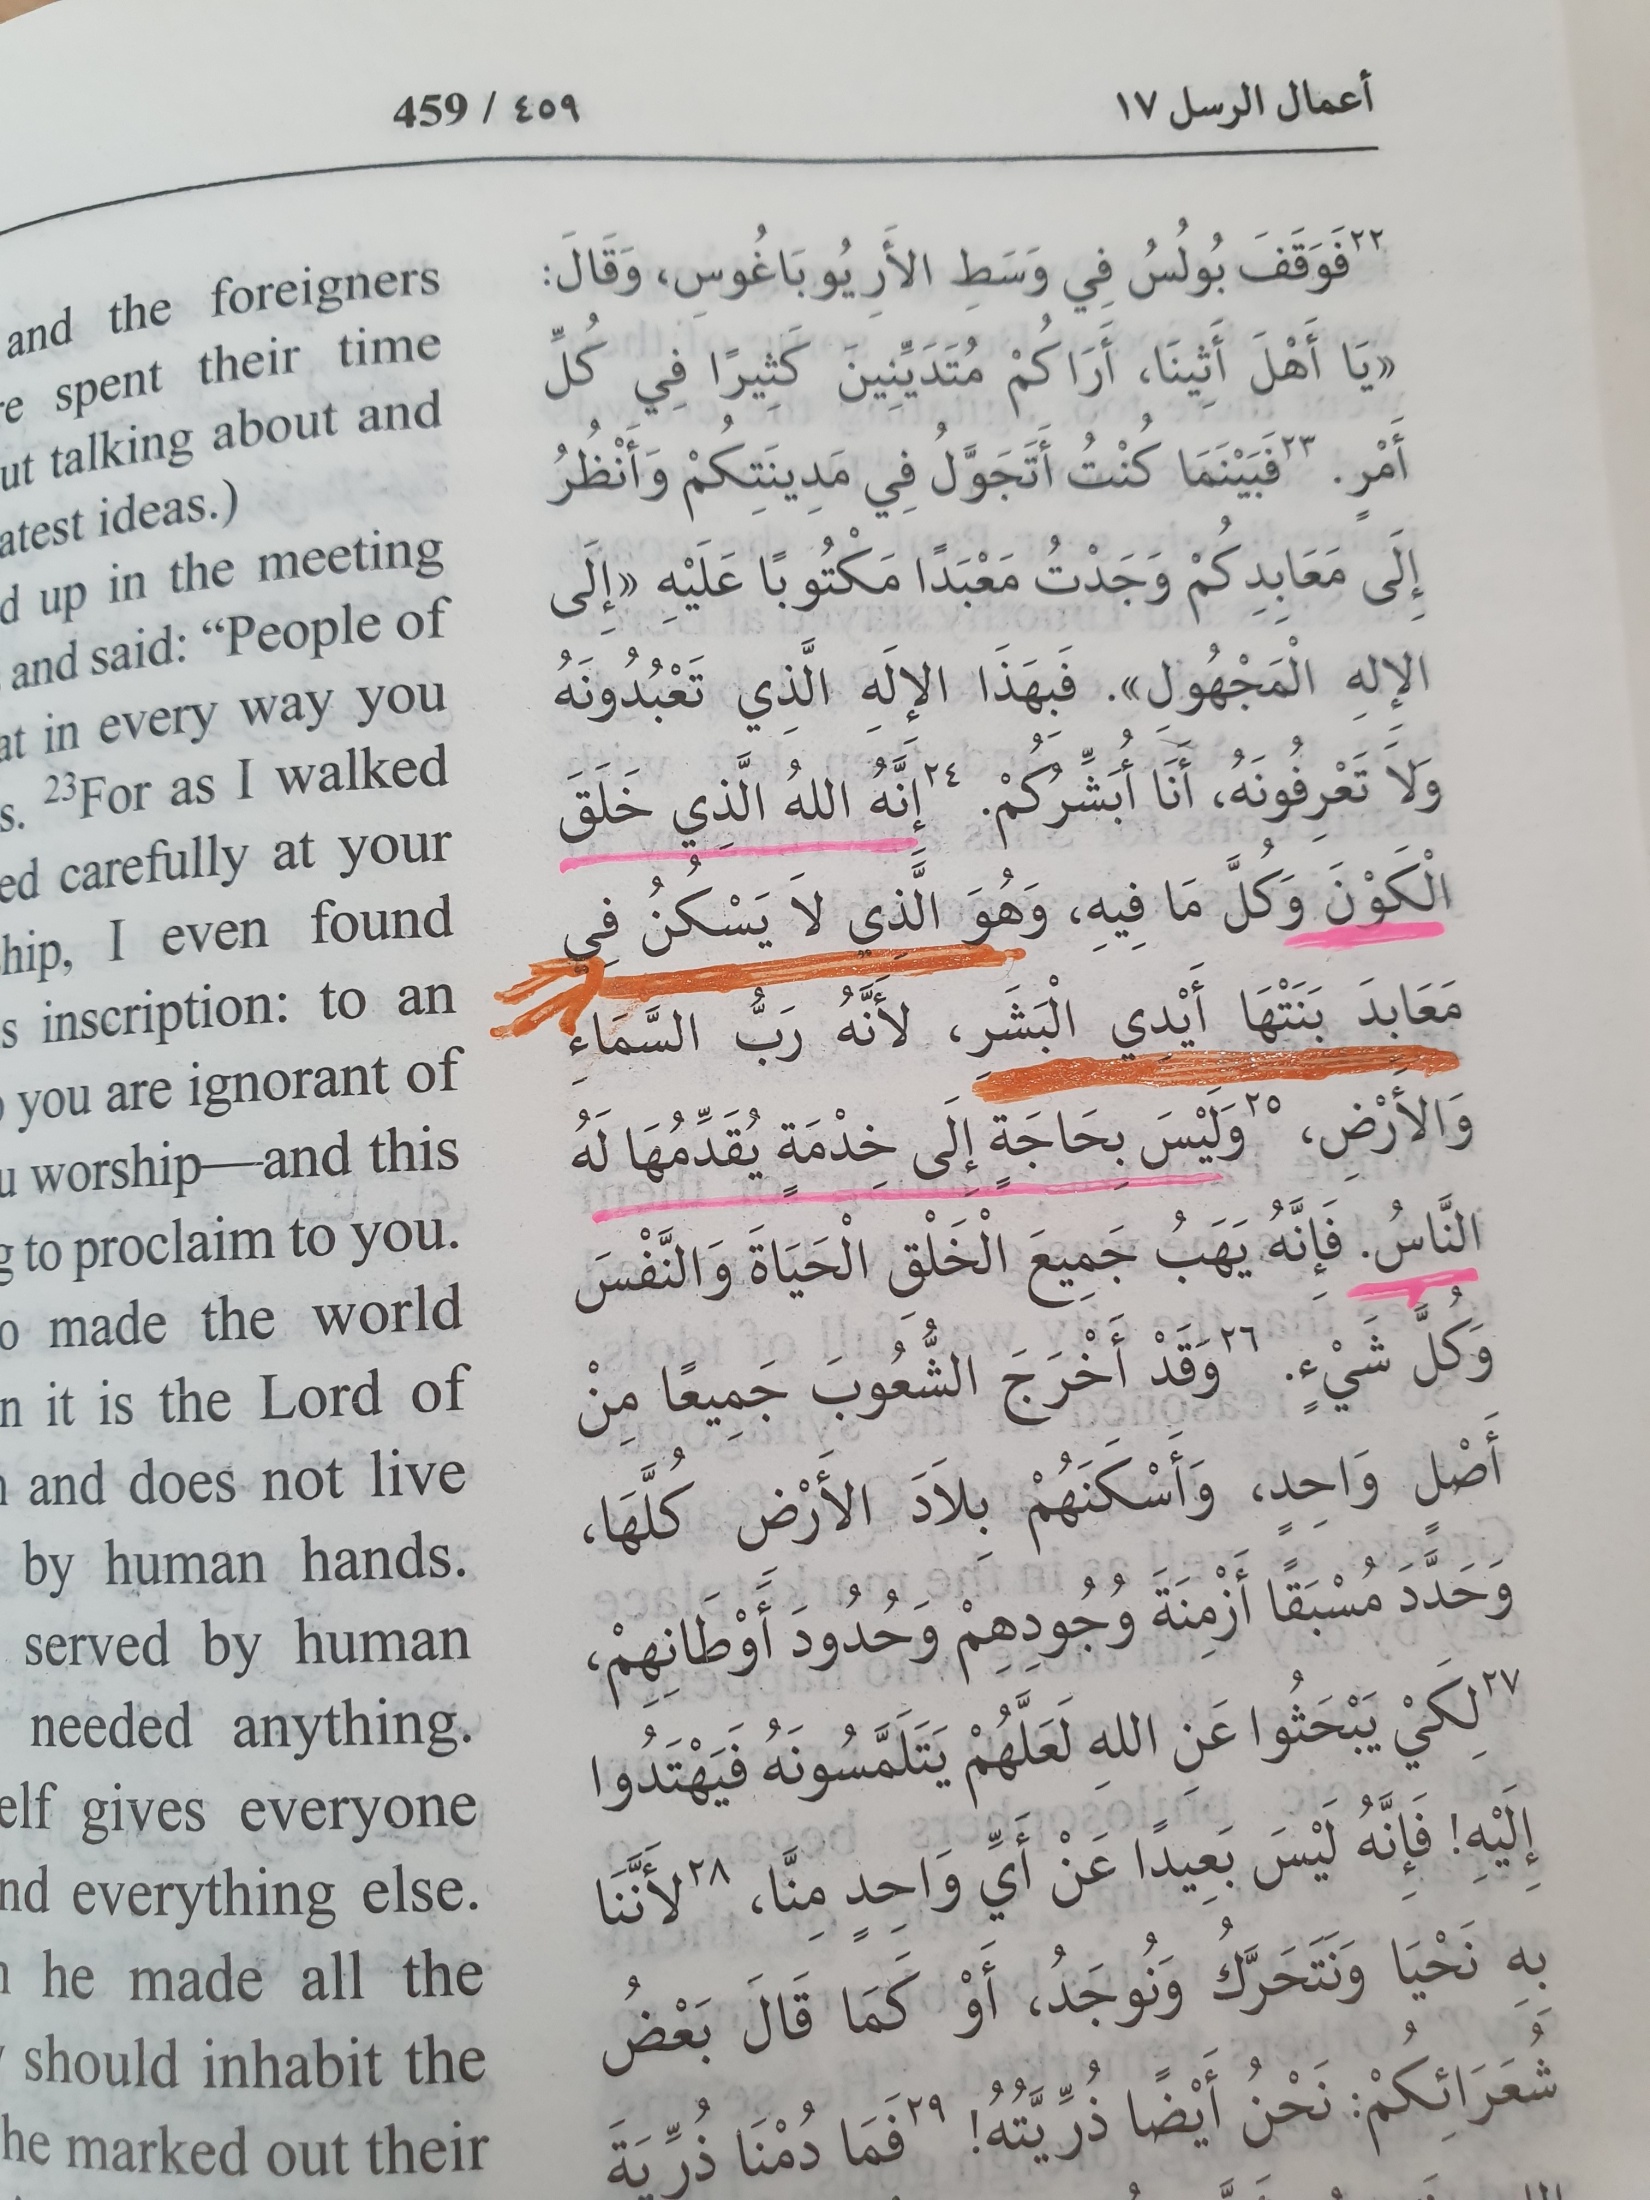 459 / ٤٥٩
أعمال الرسل ١٧
and the foreigners
spent their time
talking about and
ideas.)
up in the meeting
and said: “People of
in every way you
23For as I walked
carefully at your
I even found
inscription: to an
you are ignorant of
worship—and this
to proclaim to you.
made the world
it is the Lord of
and does not live
by human hands.
served by human
needed anything.
gives everyone
everything else.
he made all the
should inhabit the
he marked out their
٢٢فَوَقَفَ بُولُسُ فِي وَسَطِ الأَرِيُوبَاغُوسِ، وَقَالَ:
«يَا أَهْلَ أَثِينَا، أَرَاكُمْ مُتَدَيِّنِينَ كَثِيرًا فِي كُلِّ
أَمْرٍ. ٢٣فَبَيْنَمَا كُنْتُ أَتَجَوَّلُ فِي مَدِينَتِكُمْ وَأَنْظُرُ
إِلَى مَعَابِدِكُمْ وَجَدْتُ مَعْبَدًا مَكْتُوبًا عَلَيْهِ «إِلَى
الإِلهِ الْمَجْهُولِ». فَبِهَذَا الإِلَهِ الَّذِي تَعْبُدُونَهُ
وَلاَ تَعْرِفُونَهُ، أَنَا أُبَشِّرُكُمْ. ٢٤إِنَّهُ اللهُ الَّذِي خَلَقَ
الْكَوْنَ وَكُلَّ مَا فِيهِ، وَهُوَ الَّذِي لاَ يَسْكُنُ فِي
مَعَابِدَ بَنَتْهَا أَيْدِي الْبَشَرِ، لأَنَّهُ رَبُّ السَّمَاءِ
وَالأَرْضِ، ٢٥وَلَيْسَ بِحَاجَةٍ إِلَى خِدْمَةٍ يُقَدِّمُهَا لَهُ
النَّاسُ. فَإِنَّهُ يَهَبُ جَمِيعَ الْخَلْقِ الْحَيَاةَ وَالنَّفْسَ
وَكُلَّ شَيْءٍ. ٢٦وَقَدْ أَخْرَجَ الشُّعُوبَ جَمِيعًا مِنْ
أَصْلٍ وَاحِدٍ، وَأَسْكَنَهُمْ بِلاَدَ الأَرْضِ كُلَّهَا،
وَحَدَّدَ مُسْبَقًا أَزْمِنَةَ وُجُودِهِمْ وَحُدُودَ أَوْطَانِهِمْ،
٢٧لِكَيْ يَبْحَثُوا عَنِ اللهِ لَعَلَّهُمْ يَتَلَمَّسُونَهُ فَيَهْتَدُوا
إِلَيْهِ! فَإِنَّهُ لَيْسَ بَعِيدًا عَنْ أَيِّ وَاحِدٍ مِنَّا، ٢٨لأَنَّنَا
بِهِ نَحْيَا وَنَتَحَرَّكُ وَنُوجَدُ، أَوْ كَمَا قَالَ بَعْضُ
شُعَرَائِكُمْ: نَحْنُ أَيْضًا ذُرِّيَّتُهُ! ٢٩فَمَا دُمْنَا ذُرِّيَةَ